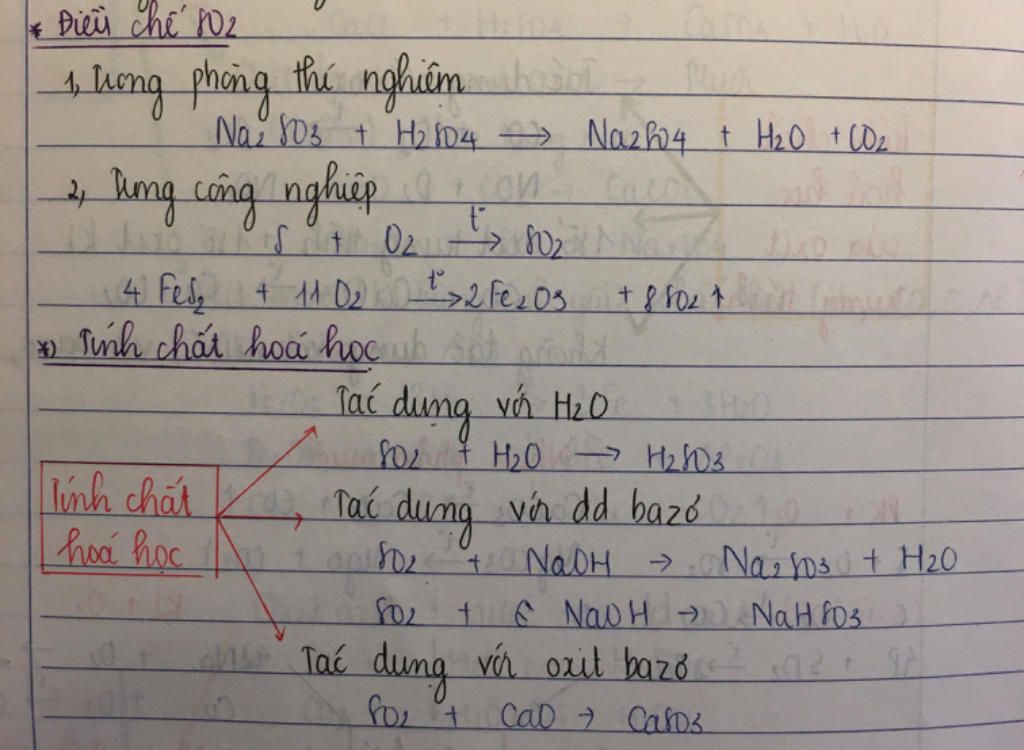 * Điều chế SO2
1, Trong phòng thí nghiệm
Na2SO3 + H2SO4 → Na2SO4 + H2O + CO2
2, Trong công nghiệp
S + O2 t° → SO2
4 FeS2 + 11 O2 t° → 2Fe2O3 + 8SO2 ↑
*) Tính chất hoá học
Tác dụng với H2O
SO2 + H2O → H2SO3
Tính chất
hoá học
Tác dụng với dd bazơ
SO2 + NaOH → Na2SO3 + H2O
SO2 + NaOH → NaHSO3
Tác dụng với oxit bazơ
SO2 + CaO → CaSO3